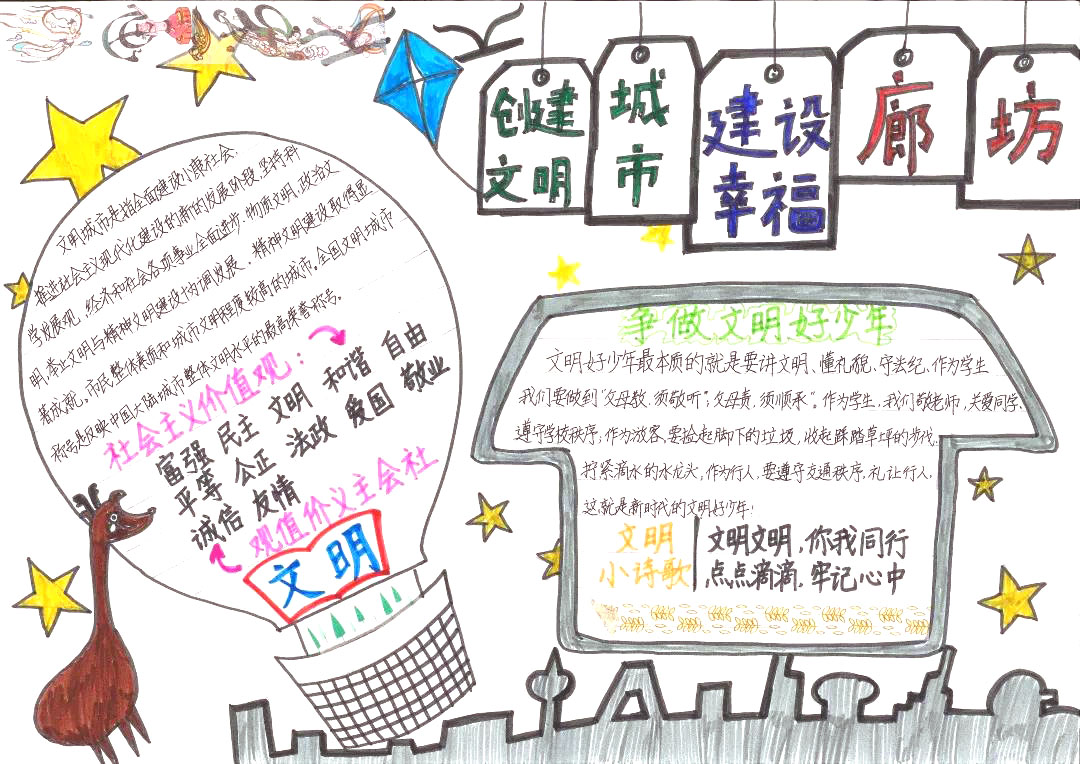 创建
文明
城
市
建设
幸福
廊
坊
文明城市是指全面建设小康社会、
推进社会主义现代化建设的新的发展阶段，坚持科
学发展观，经济和社会各项事业全面进步，物质文明、政治文
明、文明与精神文明建设协调发展，精神文明建设取得显
著成就，市民整体素质和城市文明程度较高的城市。全国文明城市
称号是反映中国大陆城市整体文明水平的最高荣誉称号。
社会主义价值观：
富强 民主 文明 和谐 自由
平等 公正 法政 爱国 敬业
诚信 友情
观值价义主会社
文明
争做文明好少年
文明好少年最本质的就是要讲文明、懂礼貌、守法纪，作为学生
我们要做到“父母教，须敬听”；“父母责，须顺承”。作为学生，我们敬老师，关爱同学、
遵守学校秩序；作为游客，要捡起脚下的垃圾，收起踩踏草坪的步伐，
拧紧滴水的水龙头，作为行人，要遵守交通秩序，礼让行人，
这就是新时代的文明好少年！
文明
小诗歌
文明文明，你我同行
点点滴滴，牢记心中